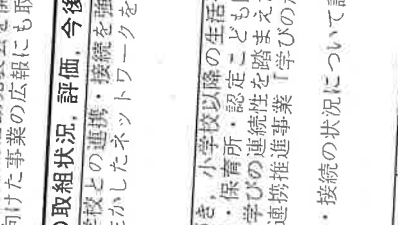 向けた事業の広報にも取
)取組状況，評価，今後
学校との連携・接続を強
かしたネットワークを
き，小学校以降の生活
・保育所・認定こども
学びの連続性を踏まえ
連携推進事業「学びの
・接続の状況について